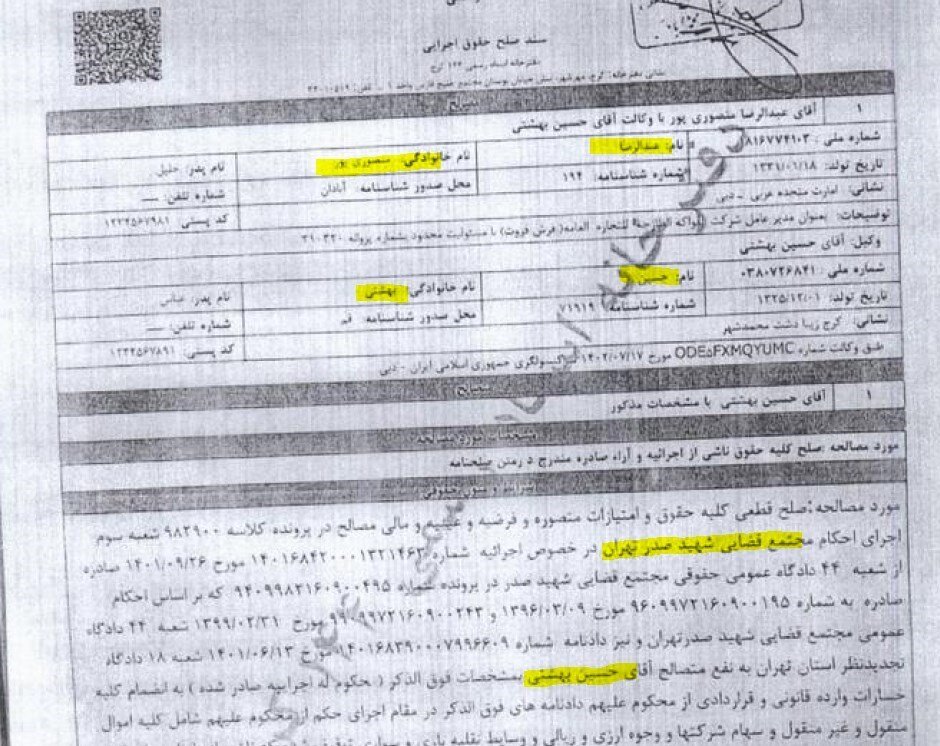 سند صلح حقوق اجرایی
دفترخانه اسناد رسمی ۱۲۲ کرج
مصالح
۱ آقای عبدالرضا منصوری پور با وکالت آقای حسین بهشتی
شماره ملی : ۸۱۶۷۷۴۱۰۳ نام: عبدالرضا نام خانوادگی: منصوری پور نام پدر: خلیل
تاریخ تولد: ۱۳۳۱/۰۱/۱۸ شماره شناسنامه: ۱۹۴ محل صدور شناسنامه: آبادان شماره تلفن: ---
نشانی: امارت متحده عربی - دبی کد پستی: ۱۲۳۴۵۶۷۹۸۱
توضیحات: بعنوان مدیر عامل شرکت للتجاره العامه( فرش فروت) با مسئولیت محدود بشماره پروانه ۳۹۰۳۲۰
وکیل: آقای حسین بهشتی
شماره ملی : ۰۳۸۰۷۲۶۸۴۱ نام: حسین نام خانوادگی: بهشتی نام پدر: عباس
تاریخ تولد: ۱۳۲۵/۱۲/۰۱ شماره شناسنامه: ۷۱۹۱۹ محل صدور شناسنامه: قم شماره تلفن: ---
نشانی: کرج زیبا دشت محمدشهر کد پستی: ۱۲۳۴۵۶۷۸۹۱
طبق وکالت شماره ODE۵FXMQYUMC مورخ ۱۴۰۲/۰۷/۱۷ کنسولگری جمهوری اسلامی ایران - دبی
متصالح
۱ آقای حسین بهشتی با مشخصات مذکور
مشخصات مورد مصالحه
مورد مصالحه: صلح کلیه حقوق ناشی از اجرائیه و آراء صادره مندرج د رمتن صلحنامه
شرایط و متون حقوقی
مورد مصالحه:صلح قطعی کلیه حقوق و امتیازات متصوره و فرضیه و عینیه و مالی مصالح در پرونده کلاسه ۹۸۲۹۰۰ شعبه سوم
اجرای احکام مجتمع قضایی شهید صدر تهران در خصوص اجرائیه شماره ۱۴۰۱۶۸۴۲۰۰۰۱۳۲۱۴۶۳ مورخ ۱۴۰۱/۰۹/۲۶ صادره
از شعبه ۴۴ دادگاه عمومی حقوقی مجتمع قضایی شهید صدر در پرونده شماره ۹۴۰۹۹۸۲۱۶۰۹۰۰۴۹۵ که بر اساس احکام
صادره به شماره ۹۶۰۹۹۷۲۱۶۰۹۰۰۱۹۵ مورخ ۱۳۹۶/۰۳/۰۹ و ۹۹۰۹۹۷۲۱۶۰۹۰۰۲۴۳ مورخ ۱۳۹۹/۰۲/۳۱ شعبه ۴۴ دادگاه
عمومی مجتمع قضایی شهید صدرتهران و نیز دادنامه شماره ۱۴۰۱۶۸۳۹۰۰۰۷۹۹۶۶۰۹ مورخ ۱۴۰۱/۰۶/۱۳ شعبه ۱۸ دادگاه
تجدیدنظر استان تهران به نفع متصالح آقای حسین بهشتی بمشخصات فوق الذکر ( محکوم له اجراییه صادر شده ) به انضمام کلیه
خسارات وارده قانونی و قراردادی از محکوم علیهم دادنامه های فوق الذکر در مقام اجرای حکم از محکوم علیهم شامل کلیه اموال
منقول و غیر منقول و سهام شرکتها و وجوه ارزی و ریالی و وسایط نقلیه